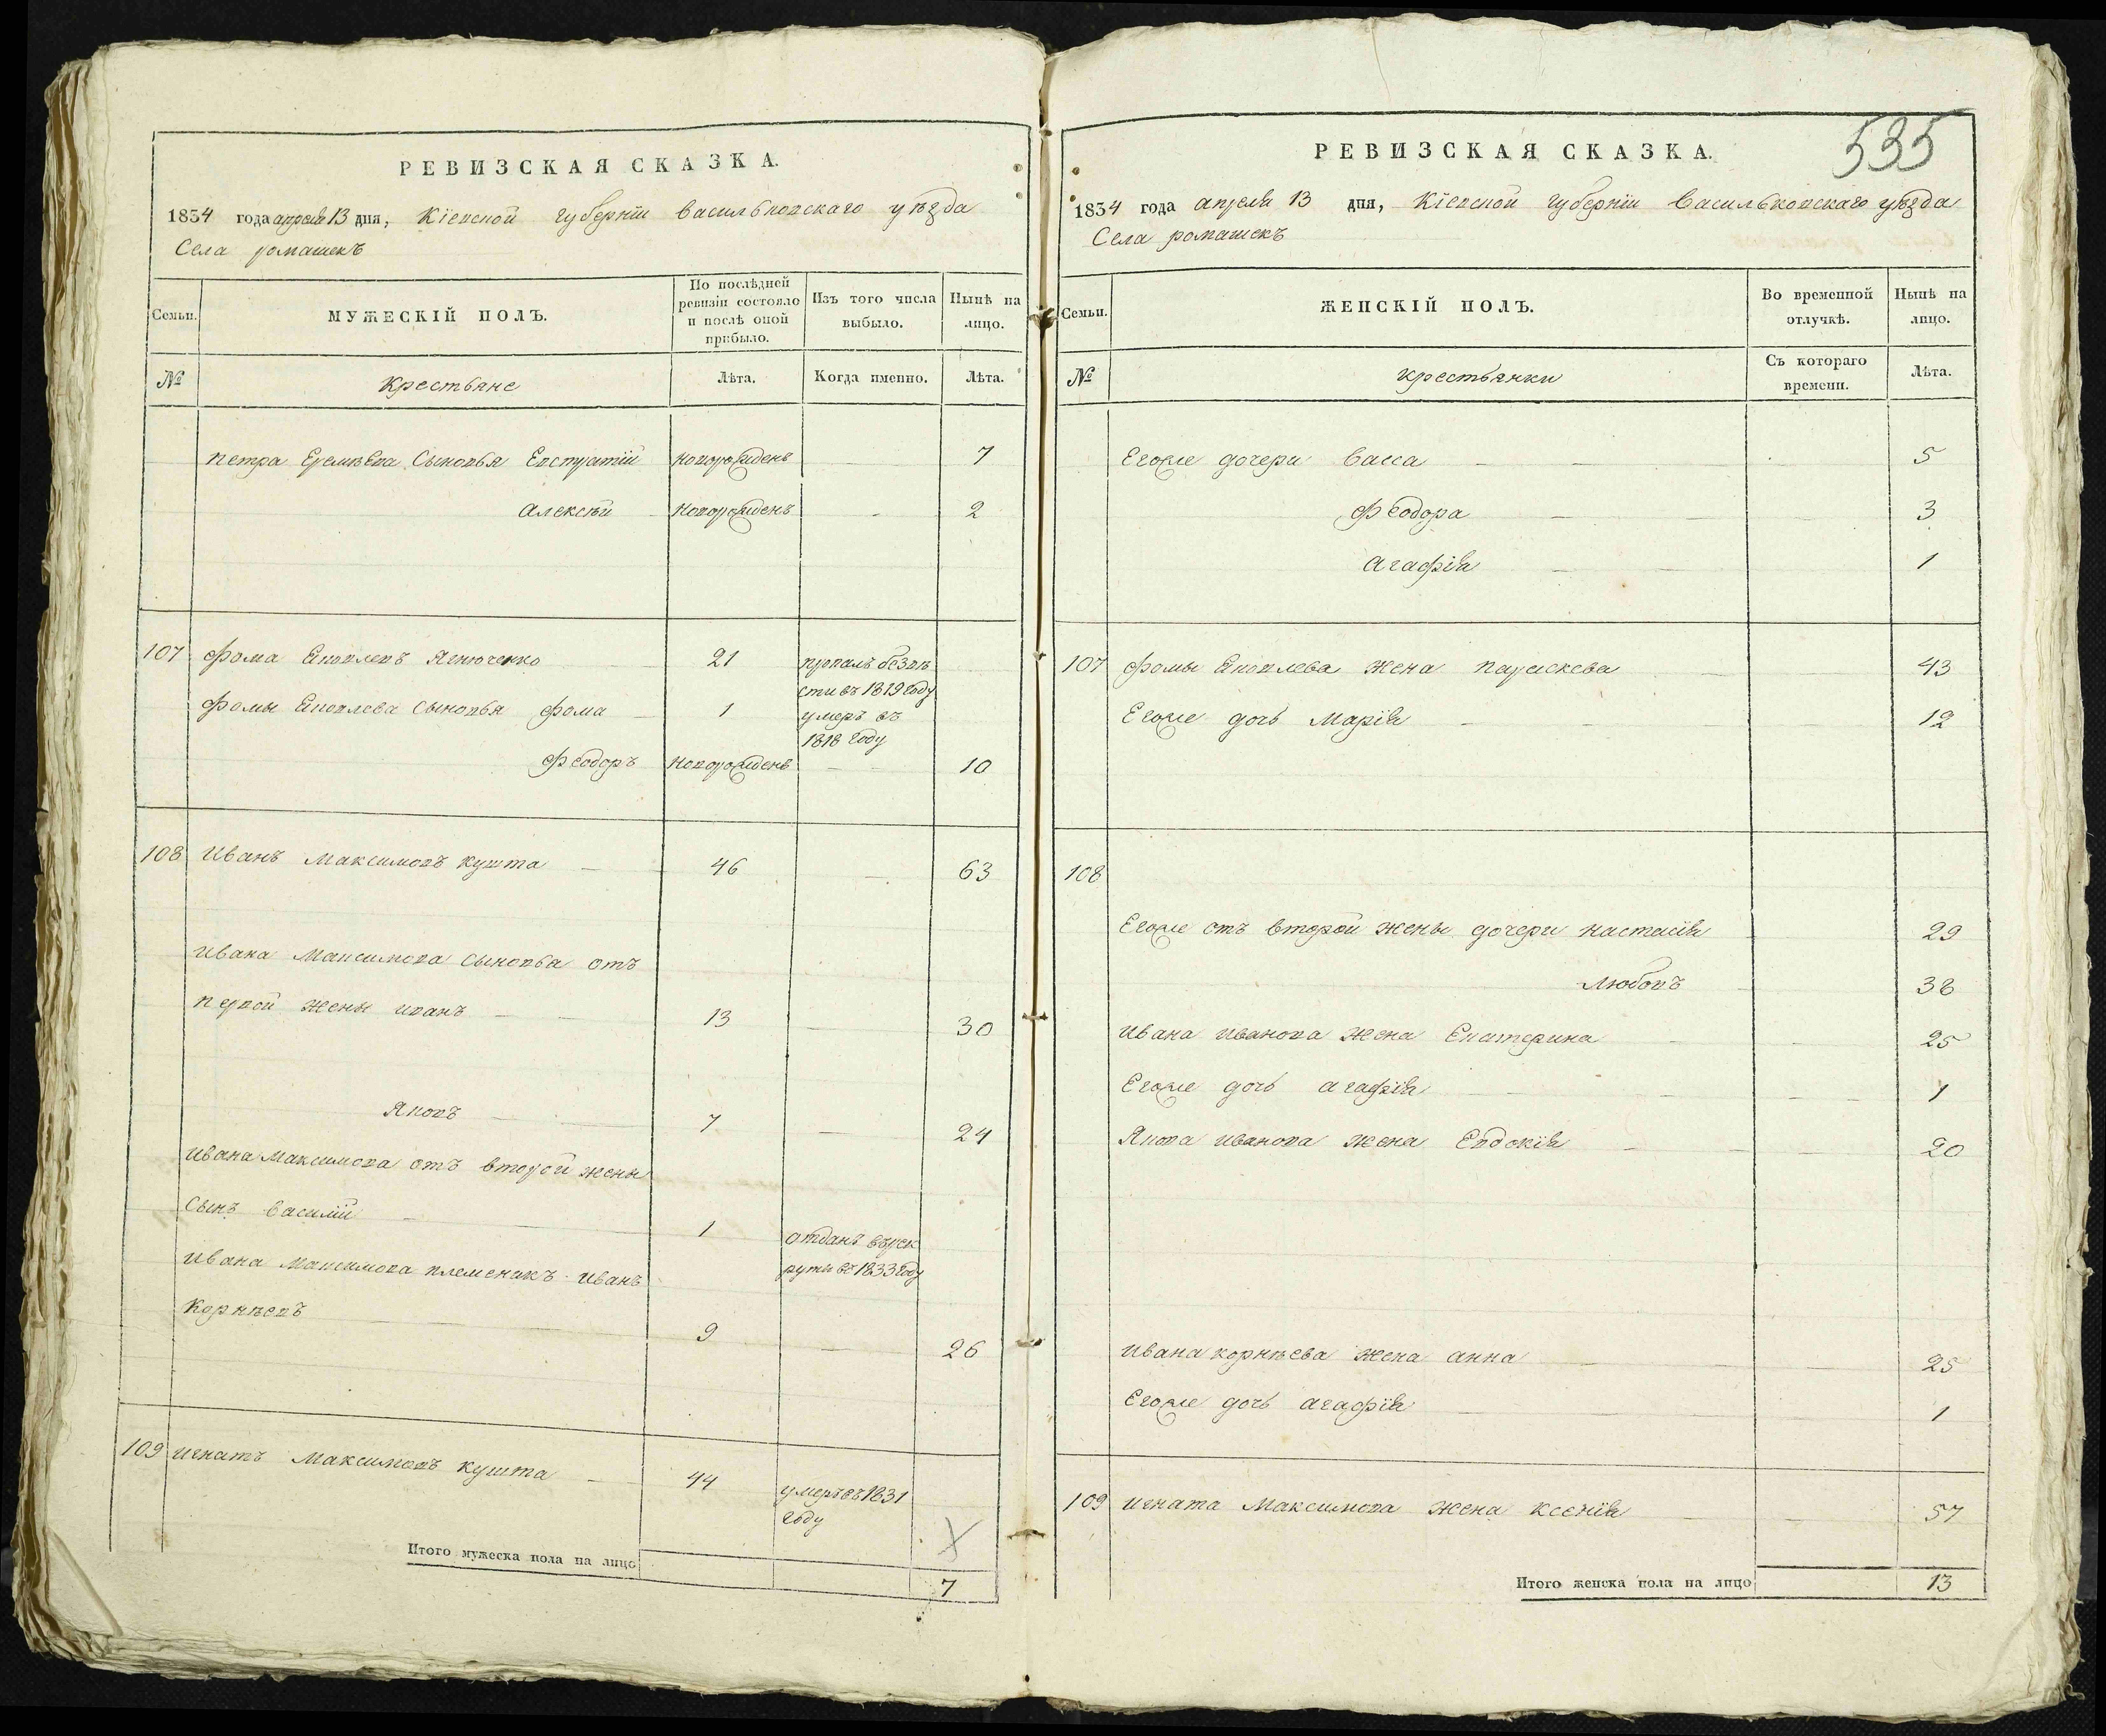 РЕВИЗСКАЯ СКАЗКА.
1834 года апреля 13 дня, Кіевской губерніи васильковскаго уѣзда
Села ромашекъ
Семьи.
МУЖЕСКІЙ ПОЛЪ.
По послѣдней ревизіи состояло и послѣ оной прибыло.
Изъ того числа выбыло.
Нынѣ на лицо.
№
Крестьяне
Лѣта.
Когда именно.
Лѣта.
петра Еремѣева Сыновья Евстратій новорожденъ — 7
Алексѣй новорожденъ - 2
107 Фома Яковлевъ 21 пропалъ безвѣ
сти въ 1819 году
Фомы Яковлева Сыновья Фома 1 умеръ въ
1818 году
Феодоръ новорожденъ — 10
108 Иванъ Максимовъ кушта 46 — 63
Ивана Максимова сыновья отъ
первой жены иванъ 13 — 30
Яковъ 7 — 24
Ивана Максимова отъ второй жены
Сынъ василій 1 отданъ врек
руты въ 1833 году
Ивана Максимова племеникъ Иванъ
Корнѣевъ 9 — 26
109 игнатъ Максимовъ кушта 44 умеръ въ 1831
году
Итого мужеска пола на лицо 7
535
РЕВИЗСКАЯ СКАЗКА.
1834 года апреля 13 дня, Кіевской губерніи Васильковскаго уѣзда
Села ромашекъ
Семьи.
ЖЕНСКІЙ ПОЛЪ.
Во временной отлучкѣ.
Нынѣ на лицо.
№
крестьянки
Съ котораго времени.
Лѣта.
Егоже дочери васса 5
Феодора 3
агафія 1
107 Фомы Яковлева жена параскева 43
Егоже дочь Марія 12
108
Егоже отъ второй жены дочери настасія 29
Любовъ 38
Ивана Иванова жена Екатерина 25
Егоже дочь агафія 1
Якова иванова жена Евдокія 20
Ивана корнѣева жена анна 25
Егоже дочь агафія 1
109 игната Максимова жена ксенія 57
Итого женска пола на лицо 13